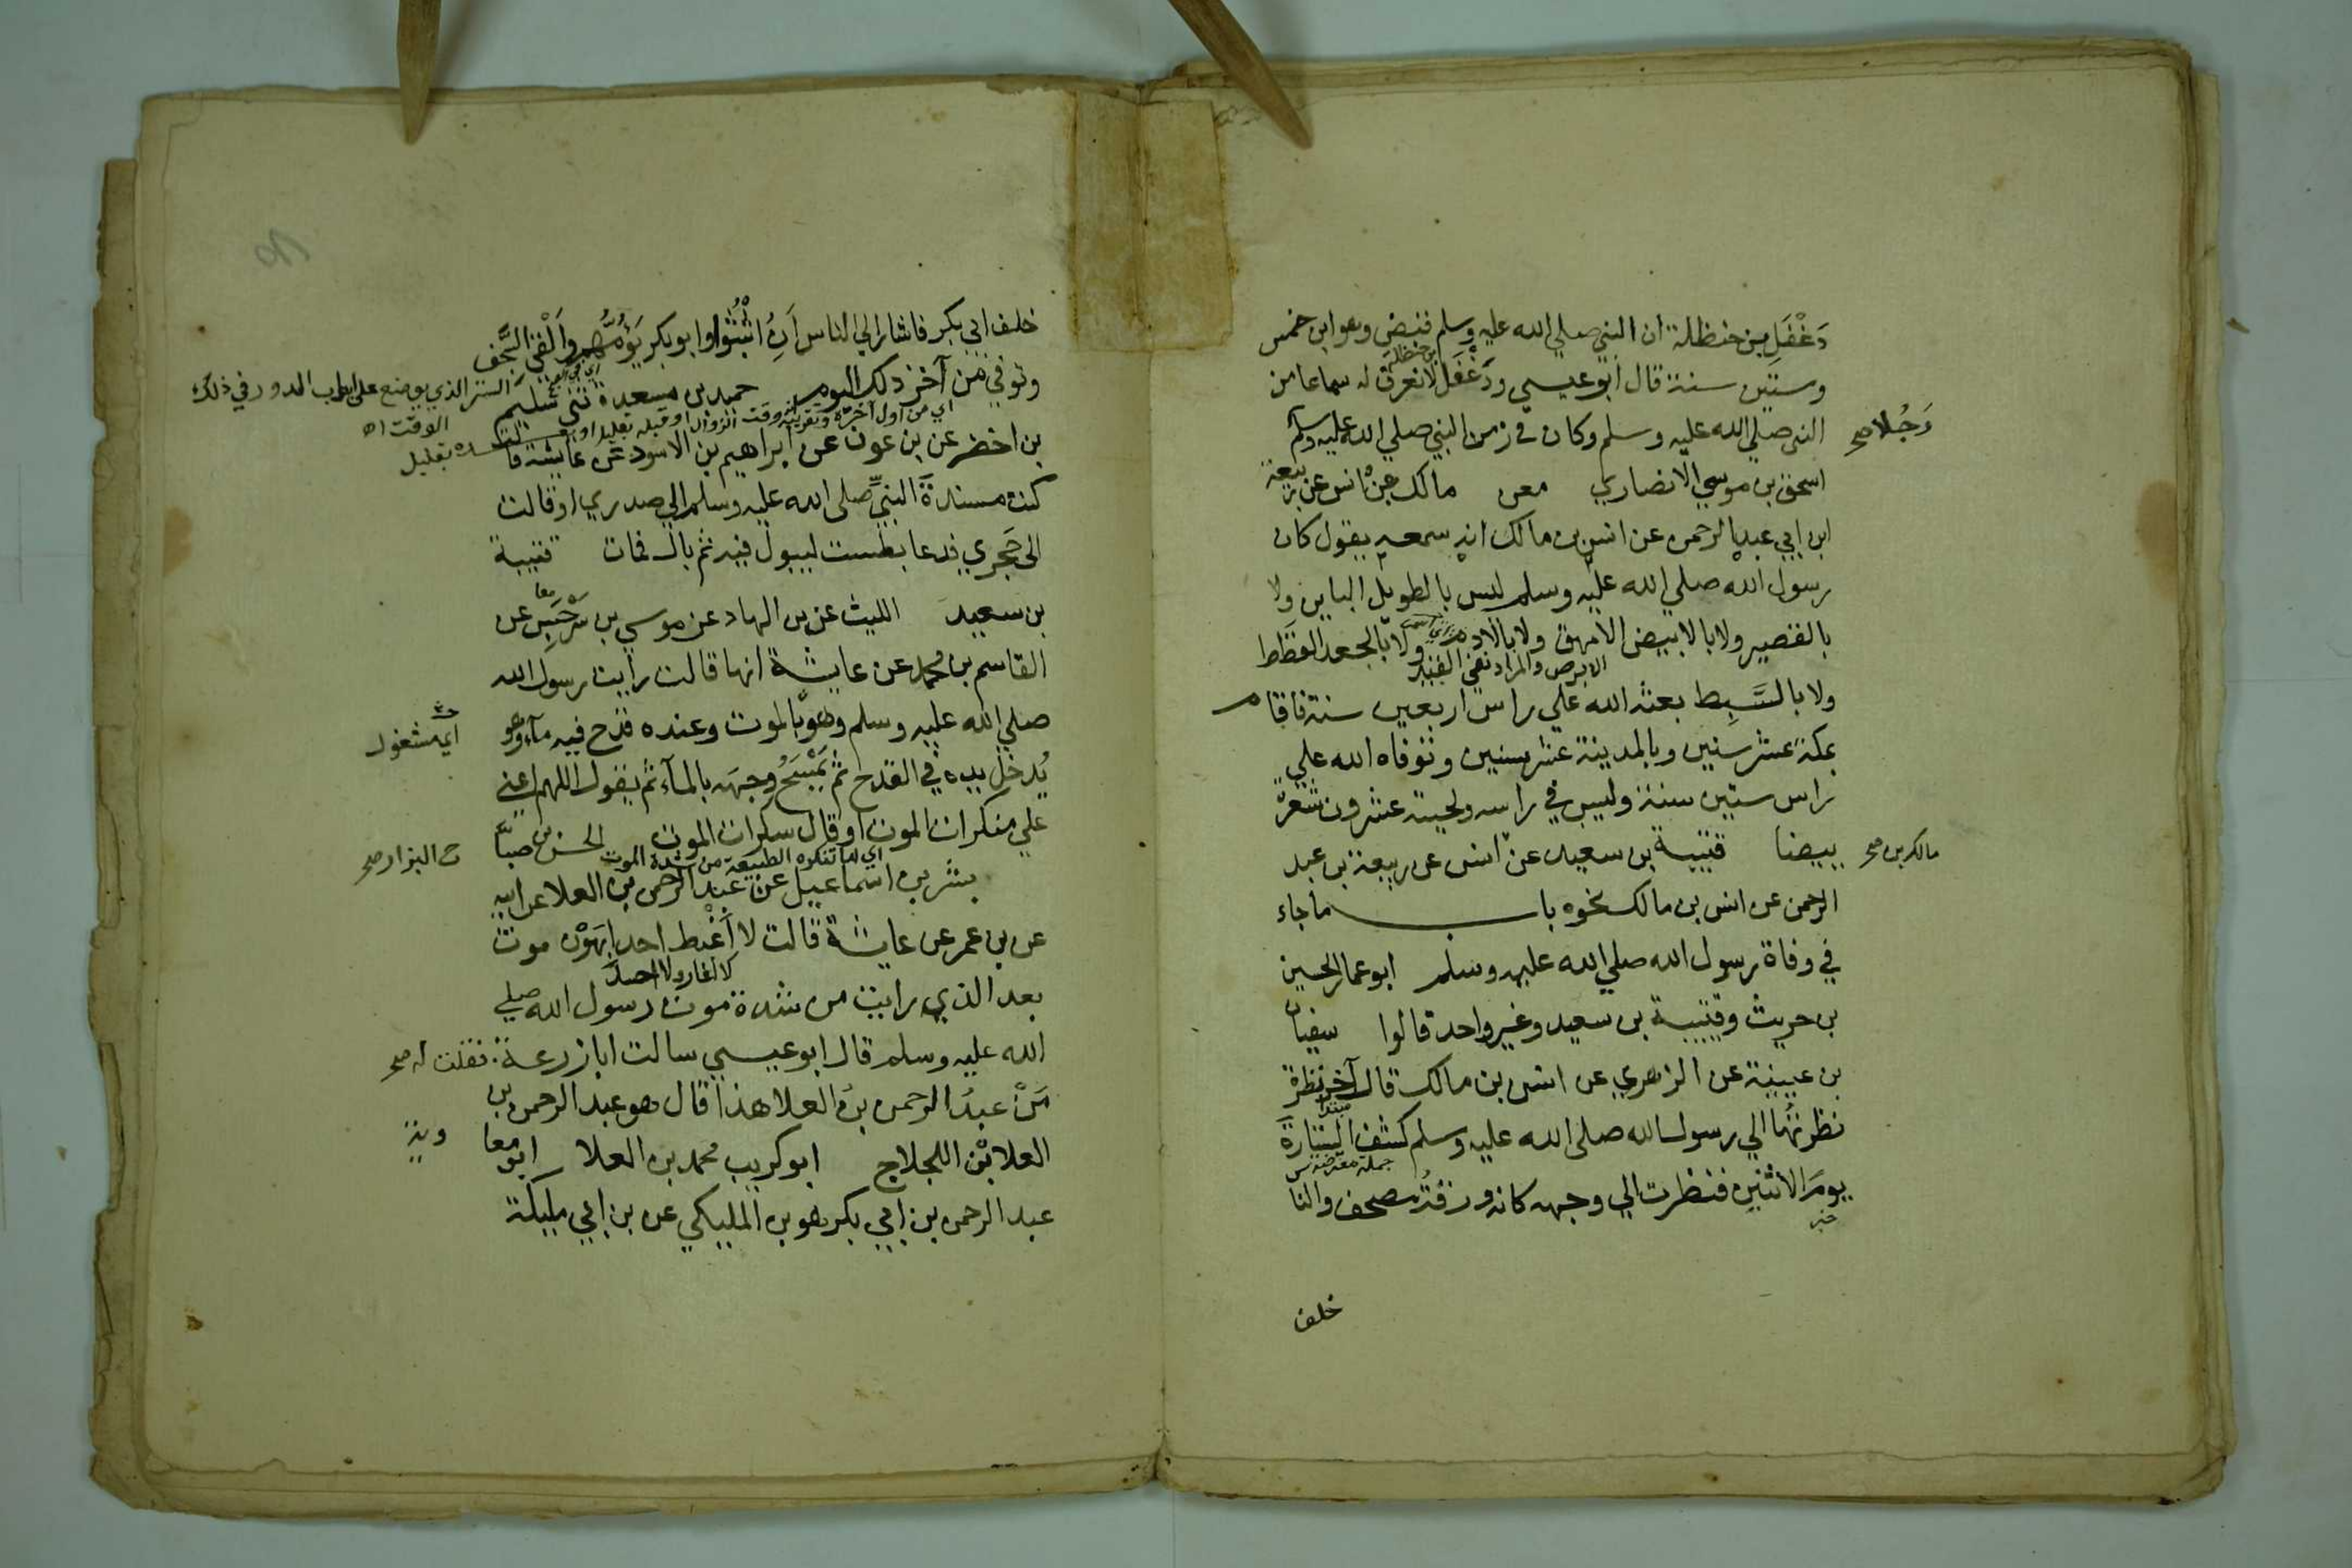 دَغْفَلِ بن حنظلة ان النبي صلي الله عليه وسلم قبض وهو ابن خمس
بن حنظلة
وستين سنة قال ابو عيسي ودَغْفَل لا نعرف له سماعا من
النبي صلي الله عليه وسلم وكان في زمن النبي صلي الله عليه وسلم
رَجُلا صح
اسحق بن موسي الانصاري معن مالك بن انس عن ربيعة
ابن ابي عبد الرحمن عن انس بن مالك انه سمعه يقول كان
رسول الله صلي الله عليه وسلم ليس بالطويل الباين ولا
بالقصير ولا بالابيض الامهق ولا بالادم ولا بالجعد القطط
الابرص والمراد نفي القيد
ولا بالسَّبِط بعثه الله علي راس اربعين سنة فاقام
بمكة عشر سنين وبالمدينة عشر سنين وتوفاه الله علي
راس ستين سنة وليس في راسه ولحيته عشرون شعرة
بيضا قتيبة بن سعيد عن انس عن ربيعة بن عبد
مالك بن صح
الرحمن عن انس بن مالك نحوه باب ما جاء
في وفاة رسول الله صلي الله عليه وسلم ابو عمار الحسين
بن حريث وقتيبة بن سعيد وغير واحد قالوا سفيان
بن عيينة عن الزهري عن انس بن مالك قال آخر نظرة
مبتدا
نظرتُها الي رسول الله صلي الله عليه وسلم كشف الستارة
جملة معترضة
يومَ الاثنين فنظرت الي وجهه كانه ورقةُ مصحف والناس
خبر
خلف
خلف ابي بكر فاشار الي الناس اَنِ اثْبُتُوا وابو بكر يَؤُمُّهم واَلْقي السَّجف
الستر الذي يوضع علي ابواب الدور في ذلك
الوقت اه
وتوفي من آخر ذلك اليوم حميد بن مسعدة ثني سُلَيم
اي من اول آخره وتقريبه وقت الزوال او قبله بقليل او بعده بقليل
بن اخضر عن بن عون عن ابراهيم بن الاسود عن عايشة قالت
كنت مسندةً النبيَّ صلي الله عليه وسلم الي صدري او قالت
الي حَجري فدعا بطست ليبول فيه ثم بال فمات قتيبة
بن سعيد الليث عن بن الهاد عن موسي بن سَرْجَسِ عن
معا
القاسم بن محمد عن عايشة انها قالت رايت رسول الله
صلي الله عليه وسلم وهو بالموت وعنده قدح فيه مآء وهو
اي مشغول
يُدخل يده في القدح ثم يَمْسَحُ وجهَه بالمآء ثم يقول اللهم اعني
علي منكرات الموت او قال سكرات الموت الحسن بن صباح
البزار صح
اي لما تنكره الطبيعة من شدة الموت
بشر بن اسماعيل عن عبد الرحمن بن العلا عن ابيه
عن بن عمر عن عايشة قالت لا أَغْبِط احدا بِهَوْن موت
لا اغار ولا احسد
بعد الذي رايت من شدة موت رسول الله صلي
الله عليه وسلم قال ابو عيسي سالت ابا زرعة فقلت له صح
مَنْ عبدُ الرحمن بنُ العلا هذا قال هو عبد الرحمن بن
العلا بْن اللجلاج ابو كريب محمد بن العلا ابو معا
وية
عبد الرحمن بن ابي بكر هو بن المليكي عن بن ابي مليكة